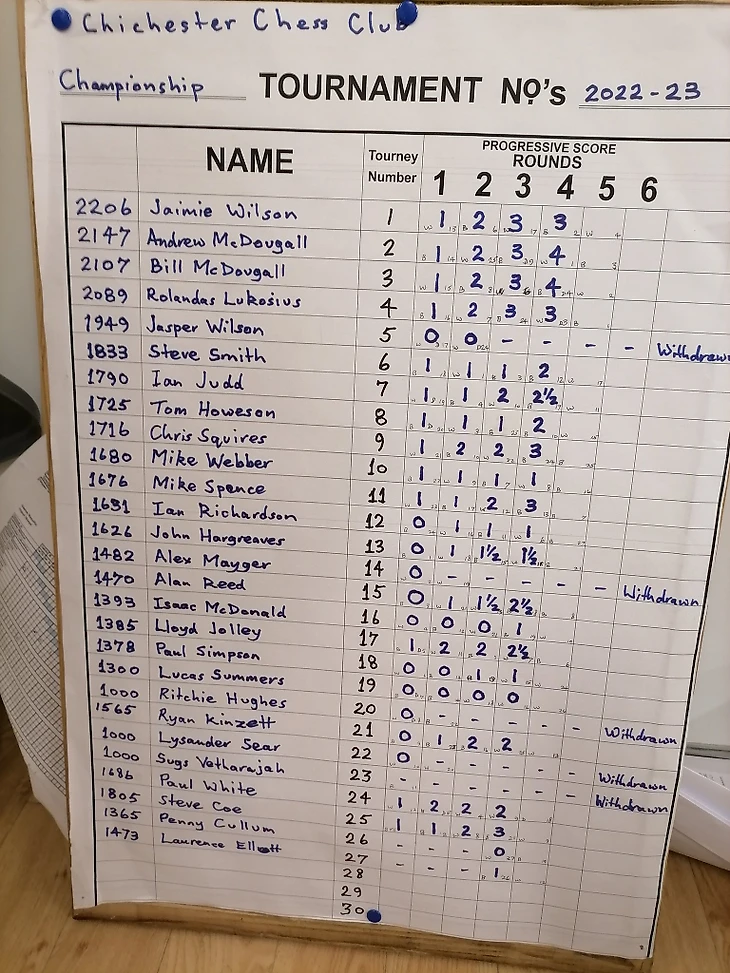 Chichester Chess Club
Championship TOURNAMENT No's 2022-23
NAME Tourney Number PROGRESSIVE SCORE
ROUNDS
1 2 3 4 5 6
2206 Jaimie Wilson 1 1 2 3 3
2147 Andrew McDougall 2 1 2 3 4
2107 Bill McDougall 3 1 2 3 4
2089 Rolandas Lukosius 4 1 2 3 3
1949 Jasper Wilson 5 0 0 - - - - Withdrawn
1833 Steve Smith 6 1 1 1 2
1790 Ian Judd 7 1 1 2 2½
1725 Tom Howeson 8 1 1 1 2
1716 Chris Squires 9 1 2 2 3
1680 Mike Webber 10 1 1 1 1
1676 Mike Spence 11 1 1 2 3
Ian Richardson 12 0 1 1 1
1626 John Hargreaves 13 0 1 1½ 1½
1482 Alex Mayger 14 0 - - - - - Withdrawn
1470 Alan Reed 15 0 1 1½ 2½
1393 Isaac McDonald 16 0 0 0 1
1385 Lloyd Jolley 17 1 2 2 2½
1378 Paul Simpson 18 0 0 1 1
1300 Lucas Summers 19 0 0 0 0
1000 Ritchie Hughes 20 0 - - - - - Withdrawn
1565 Ryan Kinzett 21 0 1 2 2
1000 Lysander Sear 22 0 - - - - - Withdrawn
1000 Sugs Vetharajah 23 - - - - - - Withdrawn
1686 Paul White 24 1 2 2 2
1805 Steve Coe 25 1 1 2 3
1365 Penny Cullum 26 - - - 0
1473 Laurence Elliott 27 - - - 1
28
29
30